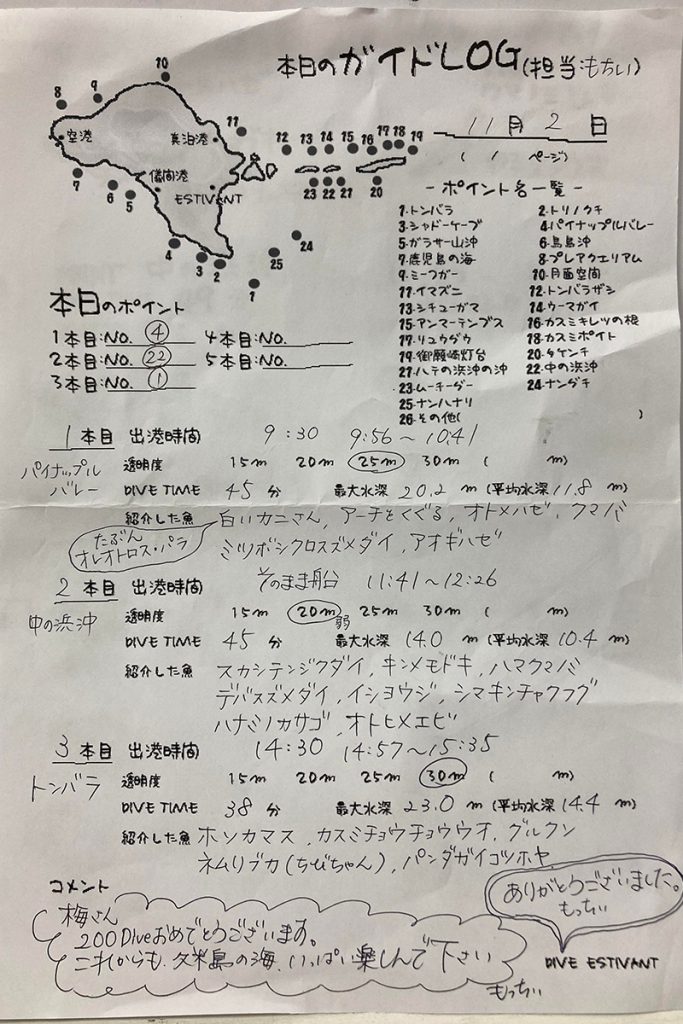 本日のガイドLOG(担当:もちい)
11月 2 日
( 1 ページ)
10
9
8
空港
真泊港
11
12 13 14 15 16 17 18 19
7
儀間港
6
5
ESTIVANT
23 22 21
20
4
3
2
24
25
1
- ポイント名一覧 -
1.トンバラ 2.トリノクチ
3.シャドーケーブ 4.パイナップルバレー
5.ガラサー山沖 6.鳥島沖
7.鹿児島の海 8.プレアクエリアム
9.ミーフガー 10.月面空間
11.イマズニ 12.トンバラザシ
13.シチューガマ 14.ウーマガイ
15.アンマーテンプス 16.カスミキレツの根
17.リュウグウ 18.カスミポイト
19.御願崎灯台 20.タケンチ
21.ハテの浜沖の沖 22.中の浜沖
23.ムーチーダー 24.ナンダチ
25.ナンハナリ
26.その他( )
本日のポイント
1本目:NO. 4 4本目:NO.
2本目:NO. 22 5本目:NO.
3本目:NO. 1
1 本目 出港時間 9:30 9:56～10:41
パイナップルバレー
透明度 15m 20m 25m 30m ( m)
DIVE TIME 45 分 最大水深 20.2 m (平均水深 11.8 m)
紹介した魚 白いカニさん, アーチをくぐる, オトメハゼ, クマノミ
たぶん
オレオトロス・パラ
ミツボシクロスズメダイ, アオギハゼ
2 本目 出港時間 そのまま船 11:41～12:26
中の浜沖
透明度 15m 20m 25m 30m ( m)
弱
DIVE TIME 45 分 最大水深 14.0 m (平均水深 10.4 m)
紹介した魚 スカシテンジクダイ, キンメモドキ, ハマクマノミ
デバスズメダイ, イシヨウジ, シマキンチャクフグ
ハナミノカサゴ, オトヒメエビ
3 本目 出港時間 14:30 14:57～15:35
トンバラ
透明度 15m 20m 25m 30m ( m)
DIVE TIME 38 分 最大水深 23.0 m (平均水深 14.4 m)
紹介した魚 ホソカマス, カスミチョウチョウウオ, グルクン
ネムリブカ(ちびちゃん), パンダガイコツホヤ
コメント
梅さん
200Diveおめでとうございます。
これからも、久米島の海、いっぱい楽しんで下さい
もっちぃ
ありがとうございました。
もっちぃ
DIVE ESTIVANT